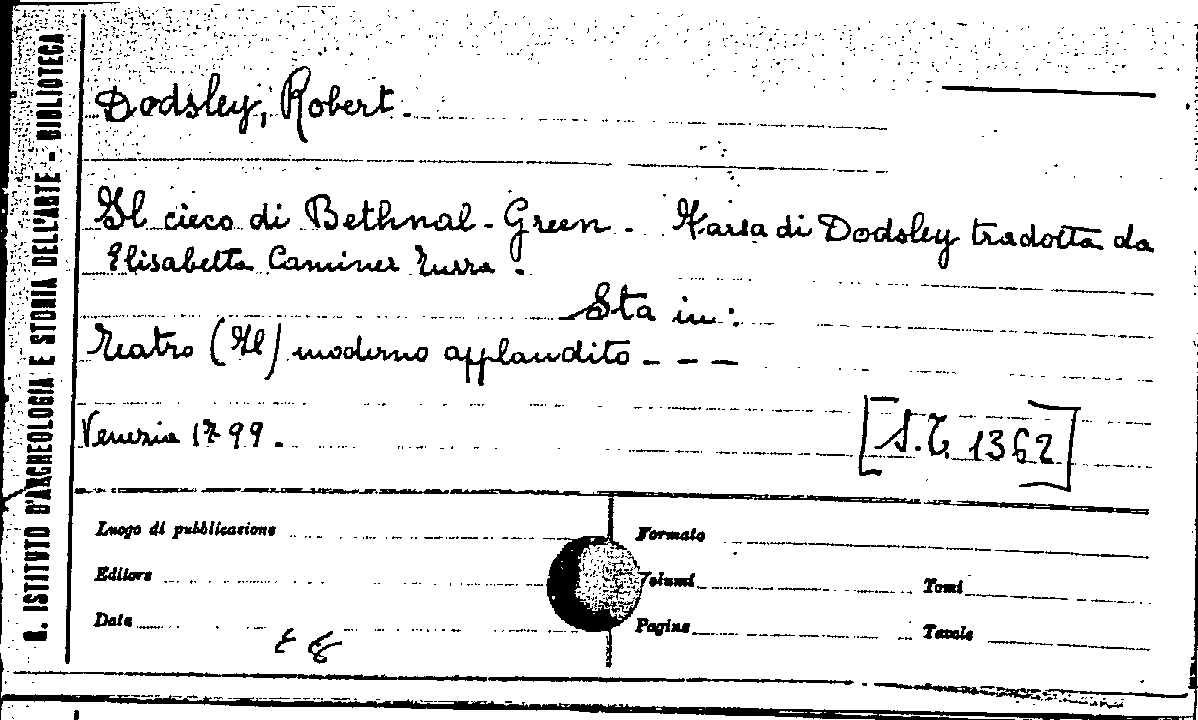 R. ISTITUTO D'ARCHEOLOGIA E STORIA DELL'ARTE - BIBLIOTECA
Dodsley, Robert.
Il cieco di Bethnal-Green. Farsa di Dodsley tradotta da
Elisabetta Caminer Turra.
Sta in:
Teatro (Il) moderno applaudito - - -
Venezia 1799.
[S.T. 1362]
Luogo di pubblicazione
Formato
Editore
Volumi
Tomi
Data
Pagine
Tavole